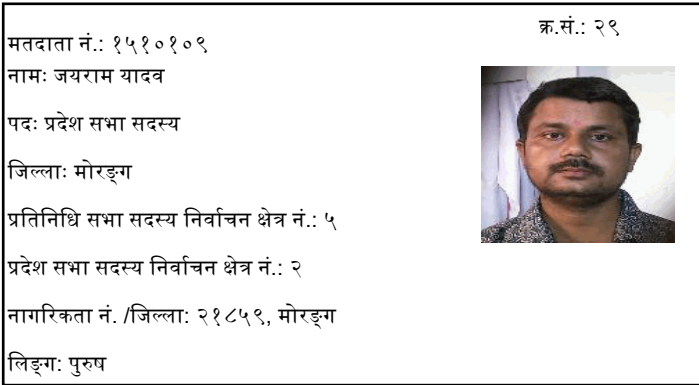 क्र.सं.: २९
मतदाता नं.: १५१०१०९
नामः जयराम यादव
पदः प्रदेश सभा सदस्य
जिल्लाः मोरङ्ग
प्रतिनिधि सभा सदस्य निर्वाचन क्षेत्र नं.: ५
प्रदेश सभा सदस्य निर्वाचन क्षेत्र नं.: २
नागरिकता नं. /जिल्ला: २१८५९, मोरङ्ग
लिङ्ग: पुरुष